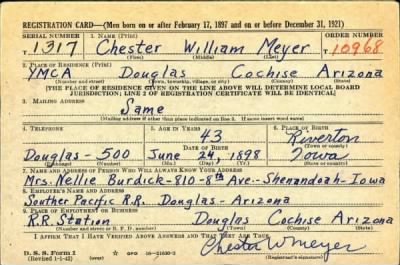 REGISTRATION CARD—(Men born on or after February 17, 1897 and on or before December 31, 1921)
SERIAL NUMBER 1. NAME (Print) ORDER NUMBER
T 1317 Chester William Meyer T10968
(First) (Middle) (Last)
2. PLACE OF RESIDENCE (Print)
YMCA Douglas Cochise Arizona
(Number and street) (Town, township, village, or city) (County) (State)
[THE PLACE OF RESIDENCE GIVEN ON THE LINE ABOVE WILL DETERMINE LOCAL BOARD
JURISDICTION; LINE 2 OF REGISTRATION CERTIFICATE WILL BE IDENTICAL]
3. MAILING ADDRESS
Same
[Mailing address if other than place indicated on line 2. If same insert word same]
4. TELEPHONE 5. AGE IN YEARS 6. PLACE OF BIRTH
43 Riverton
DATE OF BIRTH (Town or county)
Douglas-500 June 24, 1898 Iowa
(Exchange) (Number) (Mo.) (Day) (Yr.) (State or country)
7. NAME AND ADDRESS OF PERSON WHO WILL ALWAYS KNOW YOUR ADDRESS
Mrs. Nellie Burdick-810-8th Ave.-Shenandoah-Iowa
8. EMPLOYER'S NAME AND ADDRESS
Souther Pacific R.R. Douglas-Arizona
9. PLACE OF EMPLOYMENT OR BUSINESS
R.R. Station Douglas Cochise Arizona
(Number and street or R. F. D. number) (Town) (County) (State)
I AFFIRM THAT I HAVE VERIFIED ABOVE ANSWERS AND THAT THEY ARE TRUE.
D. S. S. Form 1 GPO 16-21630-2 Chester W Meyer
(Revised 1-5-42) (over) (Registrant's signature)